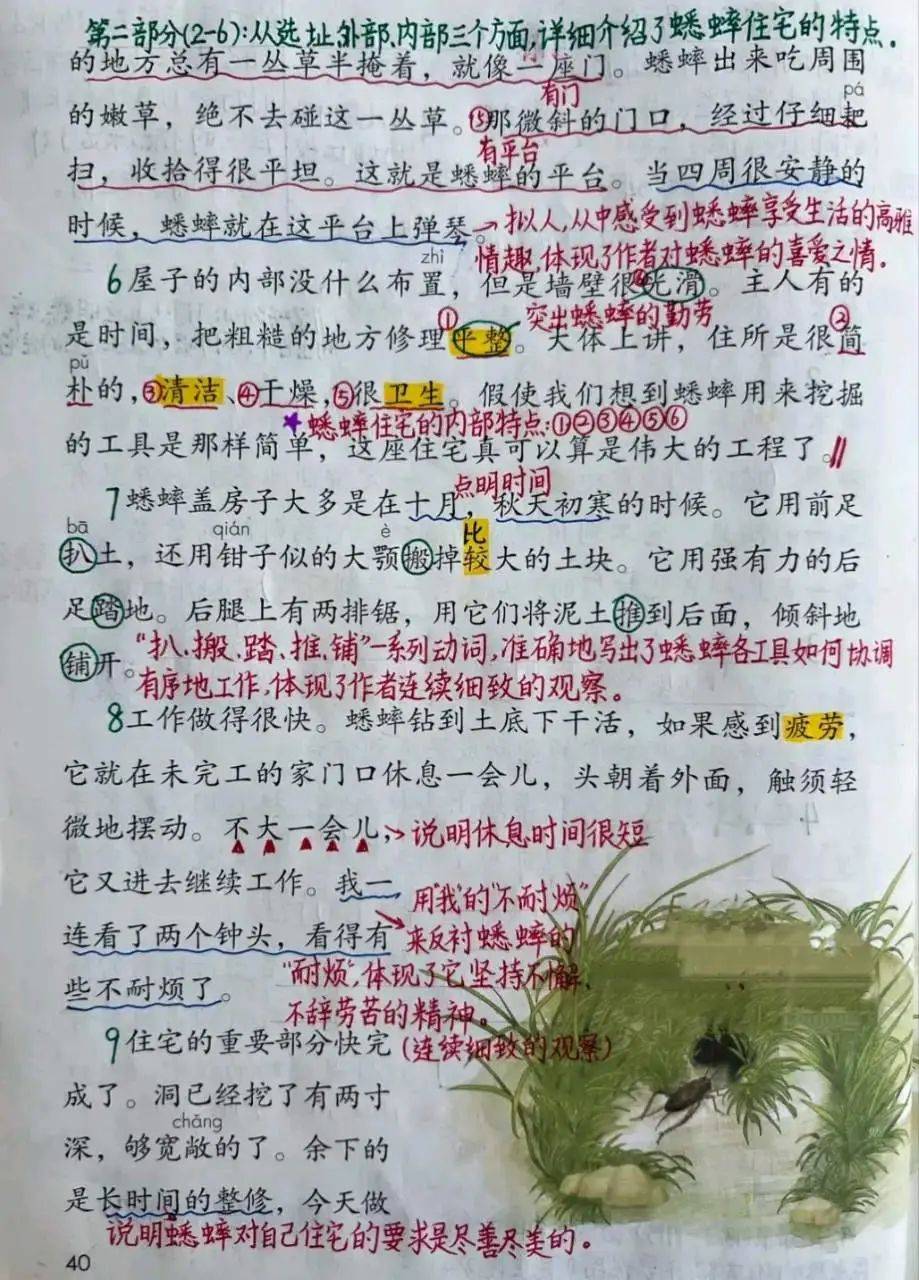 第二部分(2-6):从选址、外部、内部三个方面,详细介绍了蟋蟀住宅的特点。
的地方总有一丛草半掩着，就像一座门。蟋蟀出来吃周围
有门
pá
的嫩草，绝不去碰这一丛草。⑤那微斜的门口，经过仔细耙
有平台
扫，收拾得很平坦。这就是蟋蟀的平台。当四周很安静的
时候，蟋蟀就在这平台上弹琴。→拟人,从中感受到蟋蟀享受生活的高雅
情趣,体现了作者对蟋蟀的喜爱之情。
zhì
6屋子的内部没什么布置，但是墙壁很光滑。主人有的
突出蟋蟀的勤劳
①
②
是时间，把粗糙的地方修理平整。大体上讲，住所是很简
pǔ
朴的，③清洁、④干燥，⑤很卫生。假使我们想到蟋蟀用来挖掘
★蟋蟀住宅的内部特点:①②③④⑤⑥
的工具是那样简单，这座住宅真可以算是伟大的工程了。
点明时间
7蟋蟀盖房子大多是在十月，秋天初寒的时候。它用前足
bā qián è 比
扒土，还用钳子似的大颚搬掉较大的土块。它用强有力的后
足踏地。后腿上有两排锯，用它们将泥土推到后面，倾斜地
铺开。“扒、搬、踏、推、铺”一系列动词,准确地写出了蟋蟀各工具如何协调
有序地工作,体现了作者连续细致的观察。
8工作做得很快。蟋蟀钻到土底下干活，如果感到疲劳，
它就在未完工的家门口休息一会儿，头朝着外面，触须轻
微地摆动。不大一会儿，→说明休息时间很短
它又进去继续工作。我一
用“我”的“不耐烦”
连看了两个钟头，看得有
来反衬蟋蟀的
“耐烦”,体现了它坚持不懈、
些不耐烦了。
不辞劳苦的精神。
9住宅的重要部分快完
(连续细致的观察)
成了。洞已经挖了有两寸
chǎng
深，够宽敞的了。余下的
是长时间的整修，今天做
说明蟋蟀对自己住宅的要求是尽善尽美的。
40